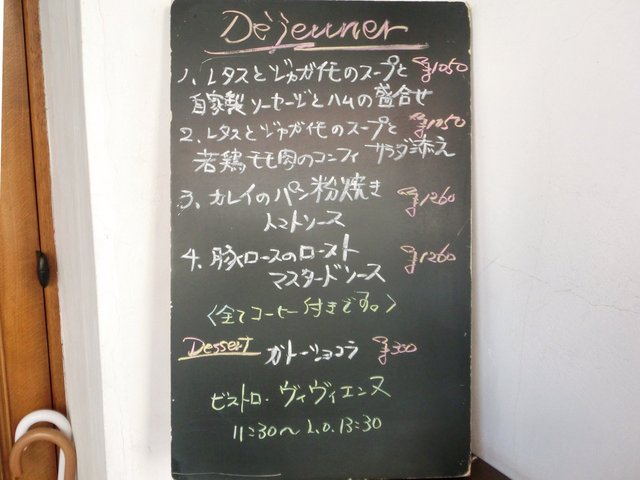 Déjeuner
1、レタスとジャガイモのスープと ¥1050
自家製ソーセージとハムの盛合せ
2、レタスとジャガイモのスープと ¥1050
若鶏モモ肉のコンフィ サラダ添え
3、カレイのパン粉焼き ¥1260
トマトソース
4、豚ロースのロースト ¥1260
マスタードソース
〈全てコーヒー付きです。〉
Dessert ガトーショコラ ¥300
ビストロ・ヴィヴィエンヌ
11:30〜L.O.13:30